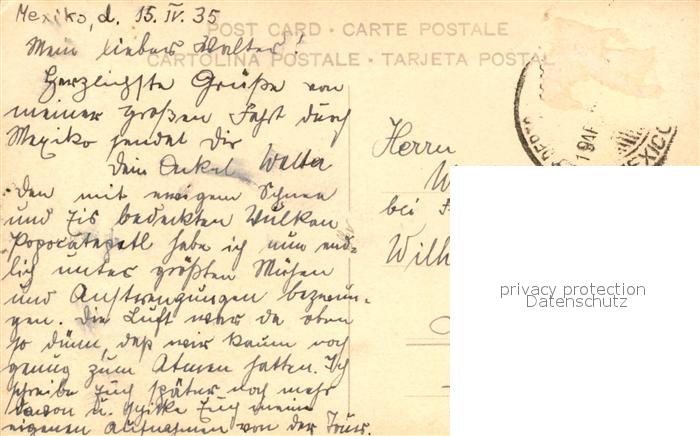 Mexiko, d. 15. IV. 35
POST CARD · CARTE POSTALE
CARTOLINA POSTALE · TARJETA POSTAL
Mein lieber Walter!
Herzlichste Grüße von
meiner großen Fahrt durch
Mexiko sendet Dir
Dein Onkel Walter
Den mit ewigem Schnee
und Eis bedeckten Vulkan
Popocatepetl habe ich nun end=
lich unter größten Mühen
und Anstrengungen bezwun-
gen. Die Luft war da oben
so dünn, daß wir kaum noch
genug zum Atmen hatten. Ich
schreibe Euch später noch mehr
davon u. schicke Euch meine
eigenen Aufnahmen von der Tour.
Herrn
bei
Wilh
MEXICO
privacy protection
Datenschutz